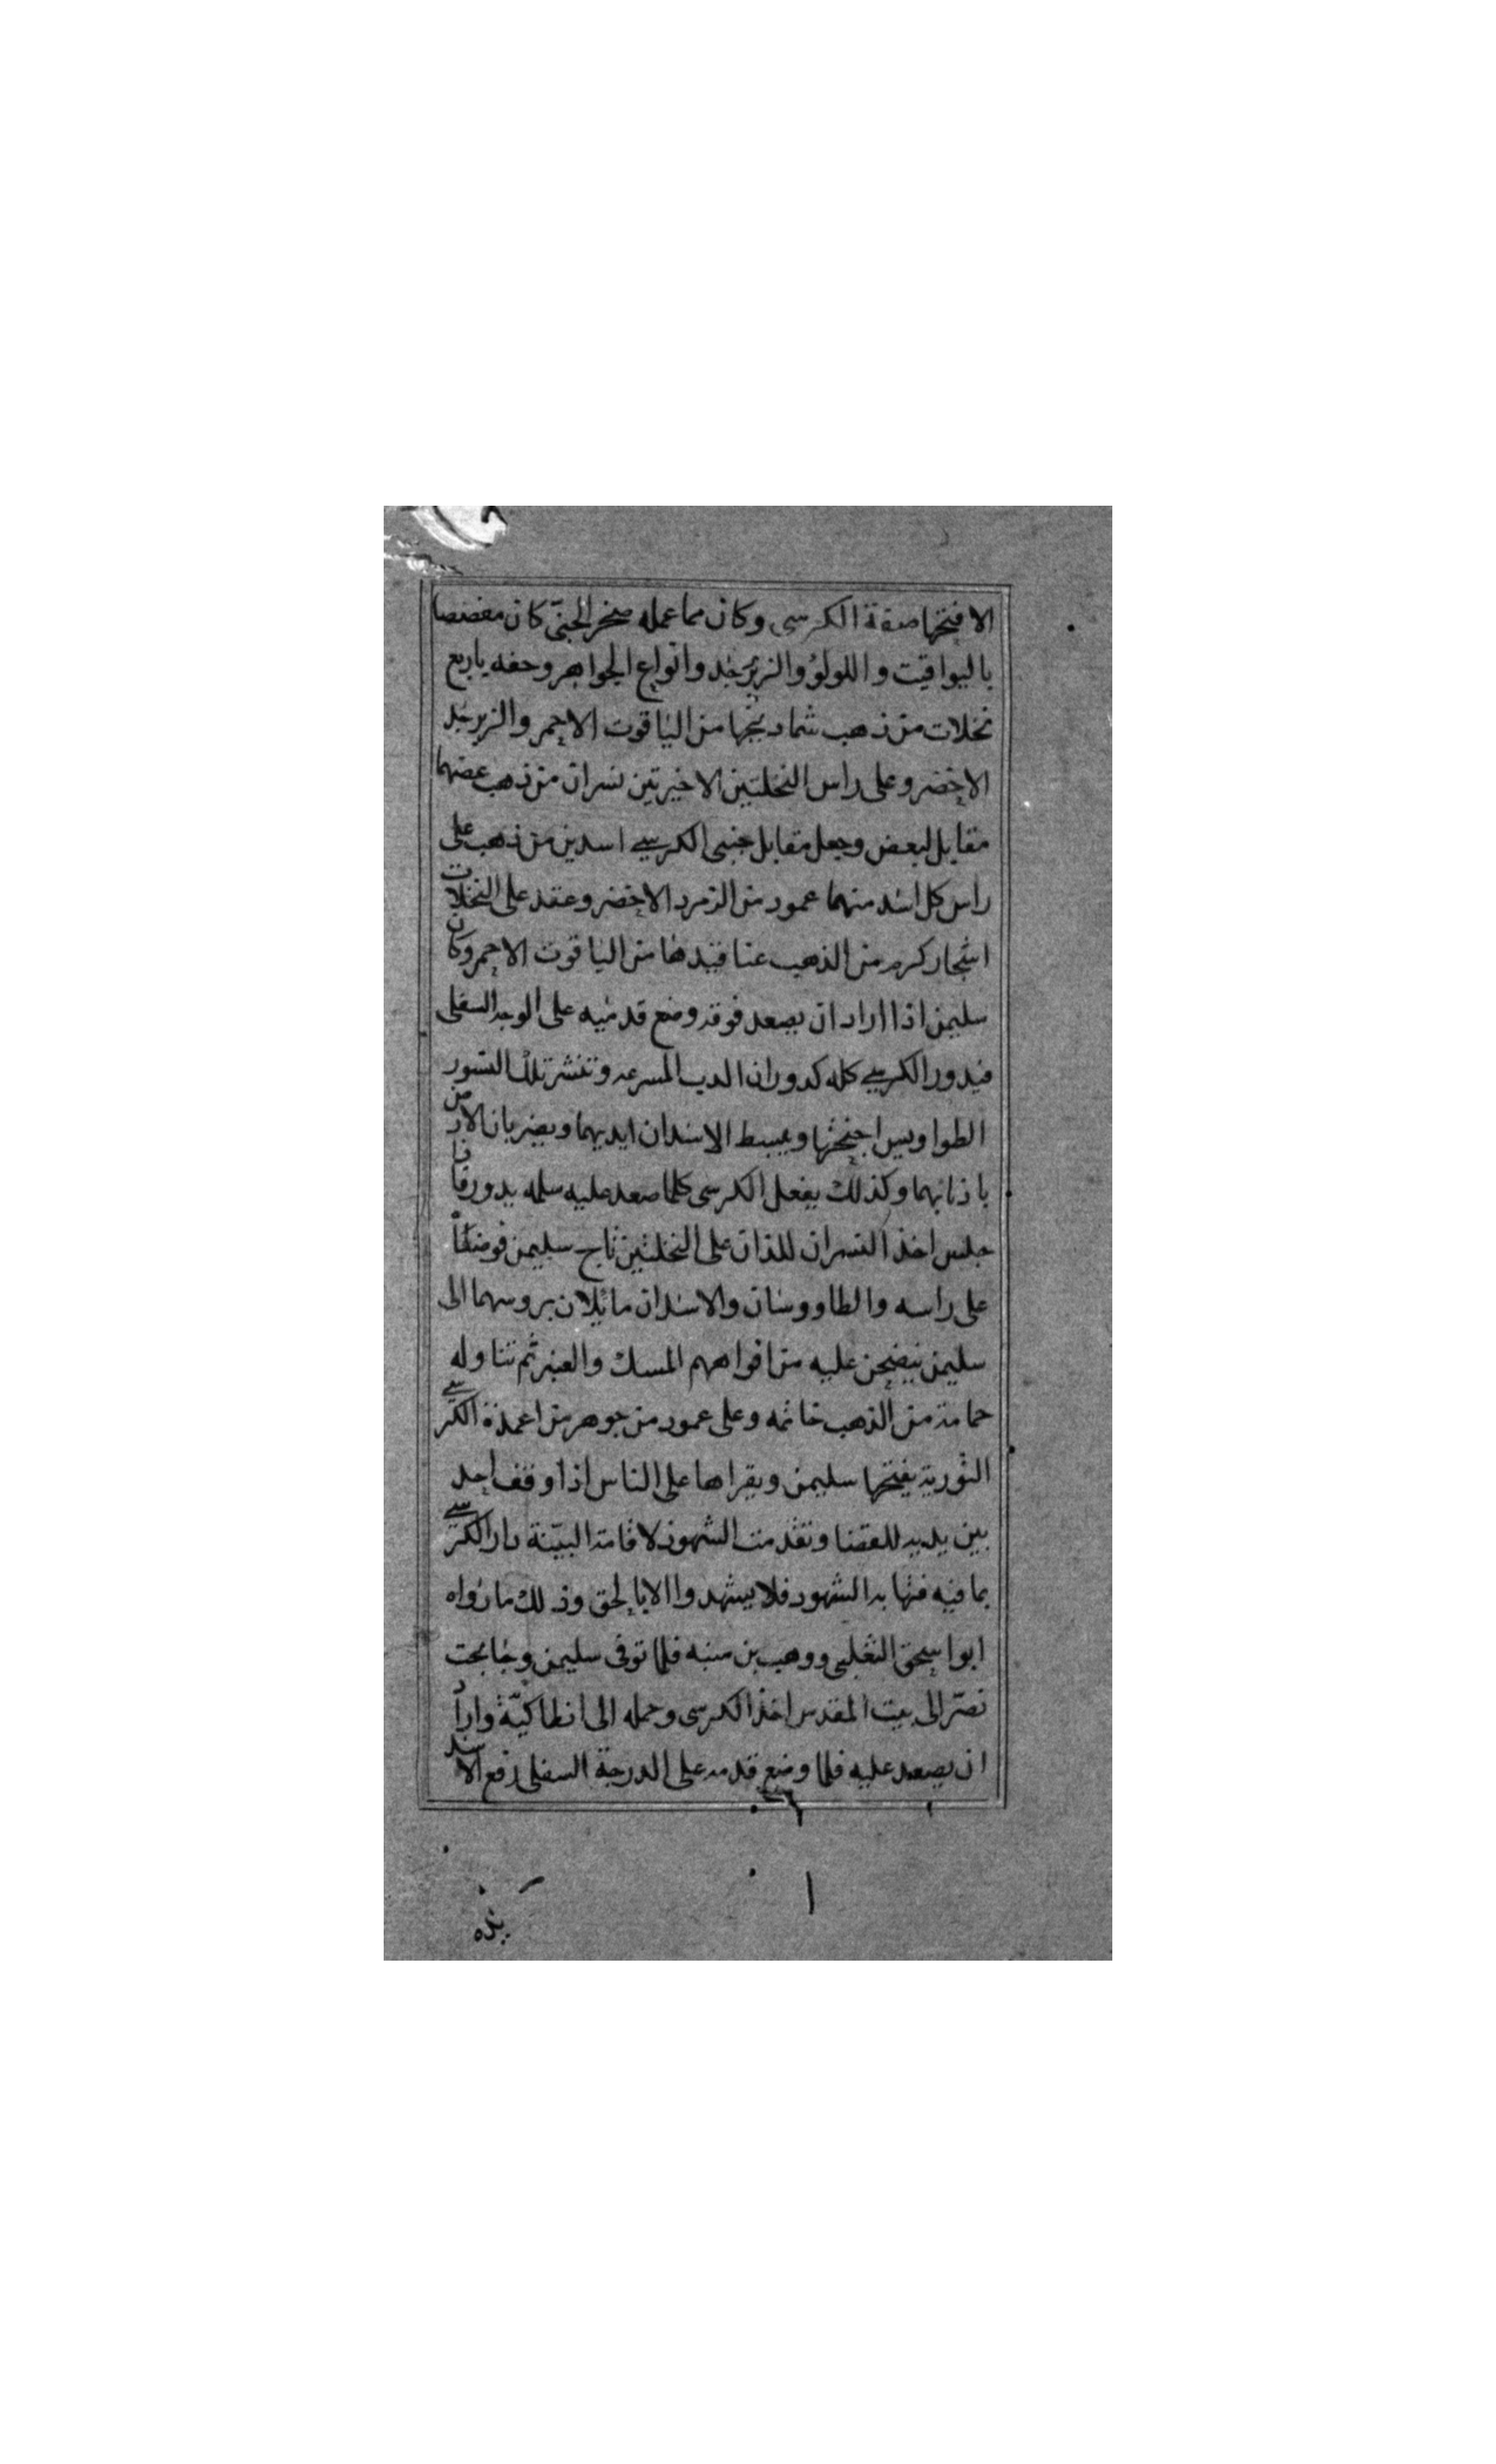 الا فتحها صفة الكرسى وكان مما عمله صخر الجنىّ كان مفضضا
باليواقيت و اللولؤ والزبرجد وانواع الجواهر وحفه باربع
نخلات من ذهب شماريخها من الياقوت الاحمر والزبرجد
الاخضر وعلى راس النخلتين الاخيرتين نسران من ذهب بعضهما
مقابل لبعض وجعل مقابل جنبى الكرسي اسدين من ذهب على
راس كل اسد منهما عمود من الزمرد الاخضر وعقد على النخلات
اشجار كرم من الذهب عناقيدها من الياقوت الاحمر وكان
سليمن اذا اراد ان يصعد فوقه وضع قدميه على الوجه السفلى
فيدور الكرسي كله كدوران الدب المسرعه وتنشر تلك النسور
الطواويس اجنحتها ويبسط الاسدان ايديهما ويضربان الارض
باذنابهما وكذلك يفعل الكرسى كلما صعد عليه سلمه يدور فان
جلس اخذ النسران للذان على النخلتين تاج سليمن فوضعاً
على راسه والطاووسان والاسدان مائلان بروسهما الى
سليمن ينضحن عليه من افواههم المسك والعنبر ثم تناوله
حمامة من الذهب خاتمه وعلى عمود من جوهر من اعمدة الكرسي
التورية يفتحها سليمن ويقراها على الناس اذا وقف احد
بين يديه للقضا وتقدمت الشهود لاقامة البيّنة دار الكرسي
بما فيه فتهابه الشهود فلا يشهدوا الا بالحق وذلك ما رواه
ابو اسحق الثعلبى ووهب بن منبه فلما توفى سليمن وجا بخت
نصّر الى بيت المقدس اخذ الكرسى وحمله الى انطاكيّة واراد
ان يصعد عليه فلما وضع قدمه على الدرجة السفلى رفع الاسد
يده